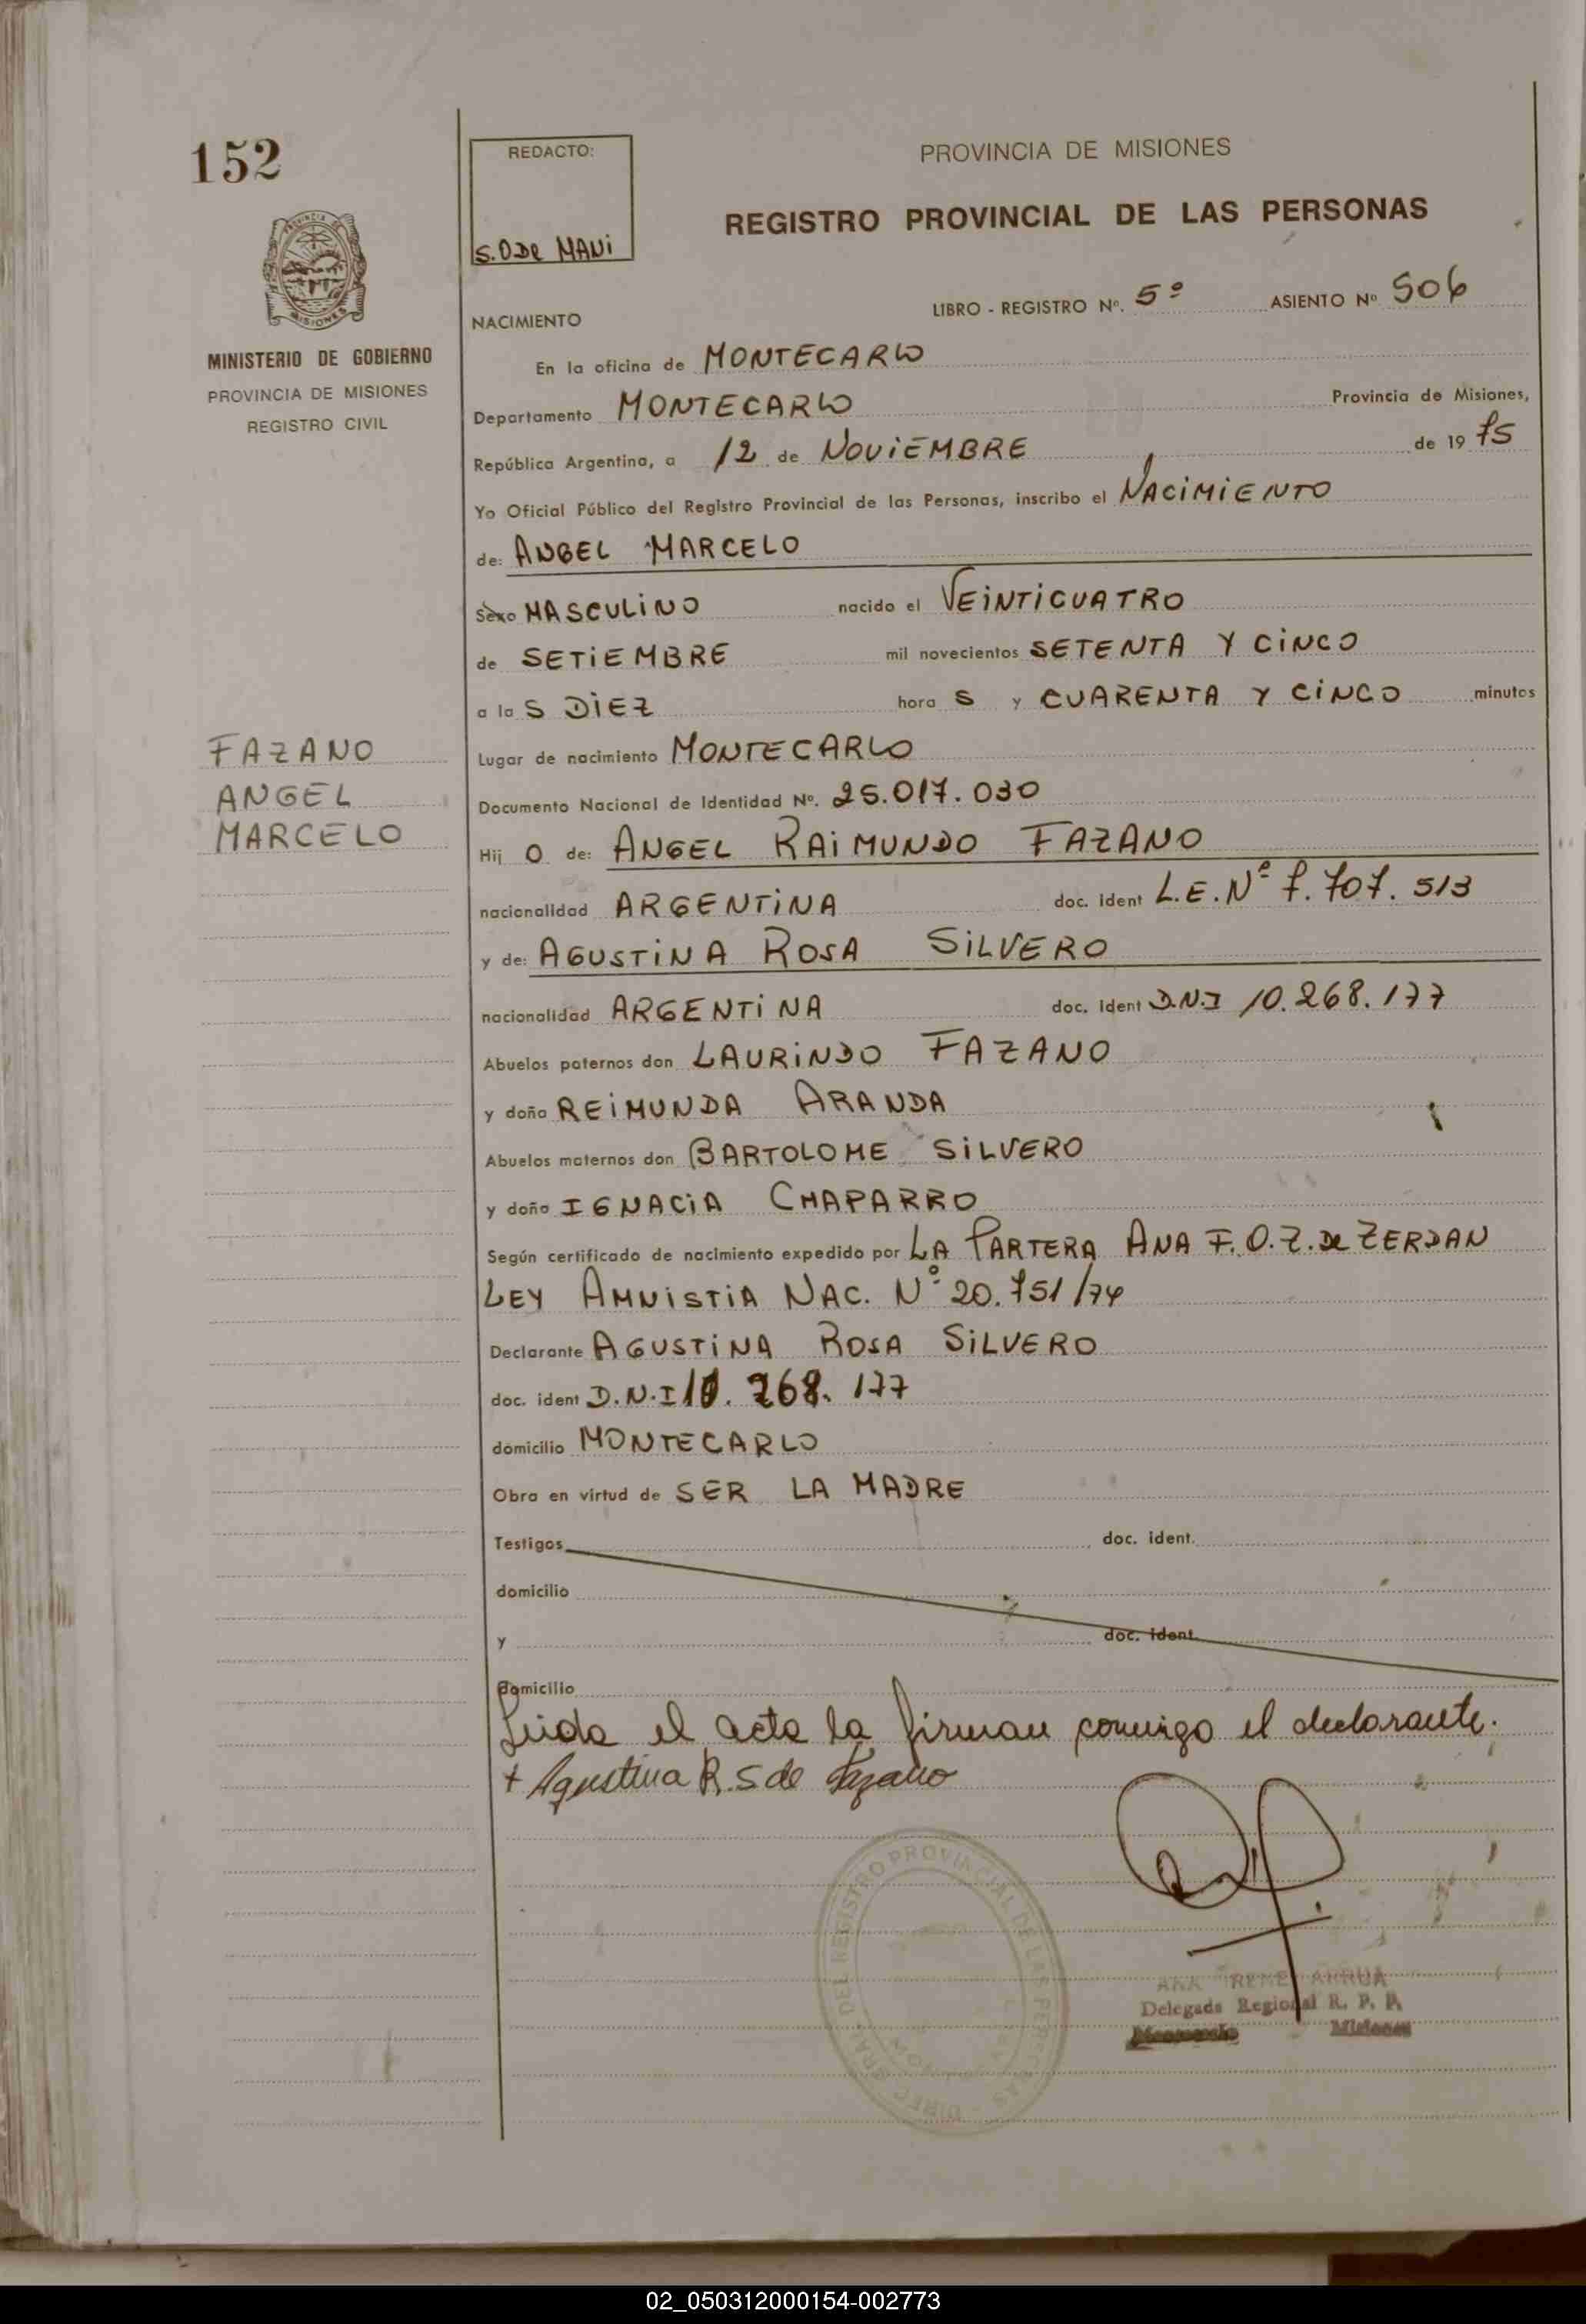 152
REDACTO:
S.O De MANi
PROVINCIA DE MISIONES
REGISTRO PROVINCIAL DE LAS PERSONAS
MISIONES
MINISTERIO DE GOBIERNO
PROVINCIA DE MISIONES
REGISTRO CIVIL
LIBRO - REGISTRO Nº. 5º ASIENTO Nº 506
NACIMIENTO
En la oficina de MONTECARLO
Departamento MONTECARLO Provincia de Misiones,
República Argentina, a 12 de NOViEMBRE de 19 75
Yo Oficial Público del Registro Provincial de las Personas, inscribo el NACiMiENTO
de: ANGEL MARCELO
Sexo MASCULiNO nacido el VEiNTiCUATRO
de SETiEMBRE mil novecientos SETENTA Y CiNCO
a la S DiEZ hora S y CUARENTA Y CiNCO minutos
FAZANO
ANGEL
MARCELO
Lugar de nacimiento MONTECARLO
Documento Nacional de Identidad Nº. 25.017.030
Hij O de: ANGEL RAiMUNDO FAZANO
nacionalidad ARGENTiNA doc. ident L.E.Nº 7.707.513
y de: AGUSTiNA ROSA SiLVERO
nacionalidad ARGENTiNA doc. ident D.N.I 10.268.177
Abuelos paternos don LAURiNDO FAZANO
y doña REiMUNDA ARANDA
Abuelos maternos don BARTOLOME SiLVERO
y doña IGNACiA CHAPARRO
Según certificado de nacimiento expedido por LA PARTERA ANA F.O.Z.De ZERDAN
LEY AMNiSTiA NAC. Nº 20.751/74
Declarante AGUSTiNA ROSA SiLVERO
doc. ident D.N.I 10.268.177
domicilio MONTECARLO
Obra en virtud de SER LA MADRE
Testigos doc. ident.
domicilio
y doc. ident.
domicilio
Leida el acta la firman conmigo el declarante.
+ Agustina R. S de Fazano
DIREC. GRAL. DEL REGISTRO PROVINCIAL DE LAS PERSONAS
ANA IRENE ARRUA
Delegada Regional R. P. P.
Montecarlo Misiones
02_050312000154-002773